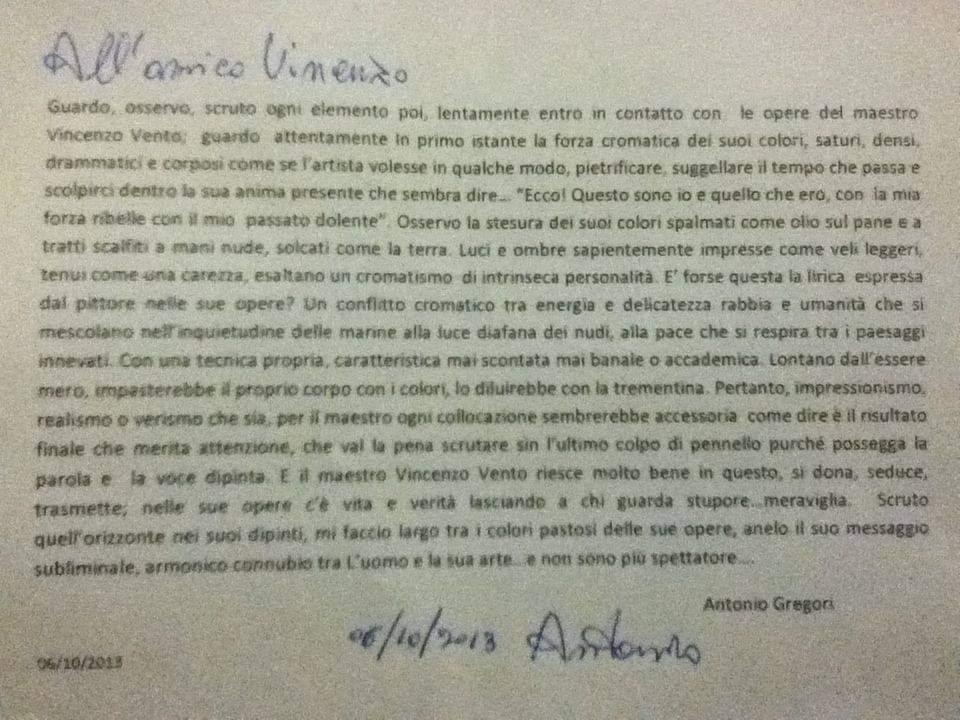 All'amico Vincenzo
Guardo, osservo, scruto ogni elemento poi, lentamente entro in contatto con le opere del maestro
Vincenzo Vento; guardo attentamente in primo istante la forza cromatica dei suoi colori, saturi, densi,
drammatici e corposi come se l'artista volesse in qualche modo, pietrificare, suggellare il tempo che passa e
scolpirci dentro la sua anima presente che sembra dire... "Ecco! Questo sono io e quello che ero, con la mia
forza ribelle con il mio passato dolente". Osservo la stesura dei suoi colori spalmati come olio sul pane e a
tratti scalfiti a mani nude, solcati come la terra. Luci e ombre sapientemente impresse come veli leggeri,
tenui come una carezza, esaltano un cromatismo di intrinseca personalità. E' forse questa la lirica espressa
dal pittore nelle sue opere? Un conflitto cromatico tra energia e delicatezza rabbia e umanità che si
mescolano nell'inquietudine delle marine alla luce diafana dei nudi, alla pace che si respira tra i paesaggi
innevati. Con una tecnica propria, caratteristica mai scontata mai banale o accademica. Lontano dall'essere
mero, impasterebbe il proprio corpo con i colori, lo diluirebbe con la trementina. Pertanto, impressionismo,
realismo o verismo che sia, per il maestro ogni collocazione sembrerebbe accessoria come dire è il risultato
finale che merita attenzione, che val la pena scrutare sin l'ultimo colpo di pennello purché possegga la
parola e la voce dipinta. E il maestro Vincenzo Vento riesce molto bene in questo, si dona, seduce,
trasmette; nelle sue opere c'è vita e verità lasciando a chi guarda stupore...meraviglia. Scruto
quell'orizzonte nei suoi dipinti, mi faccio largo tra i colori pastosi delle sue opere, anelo il suo messaggio
subliminale, armonico connubio tra L'uomo e la sua arte...e non sono più spettatore....
Antonio Gregori
06/10/2013 Antonio
06/10/2013